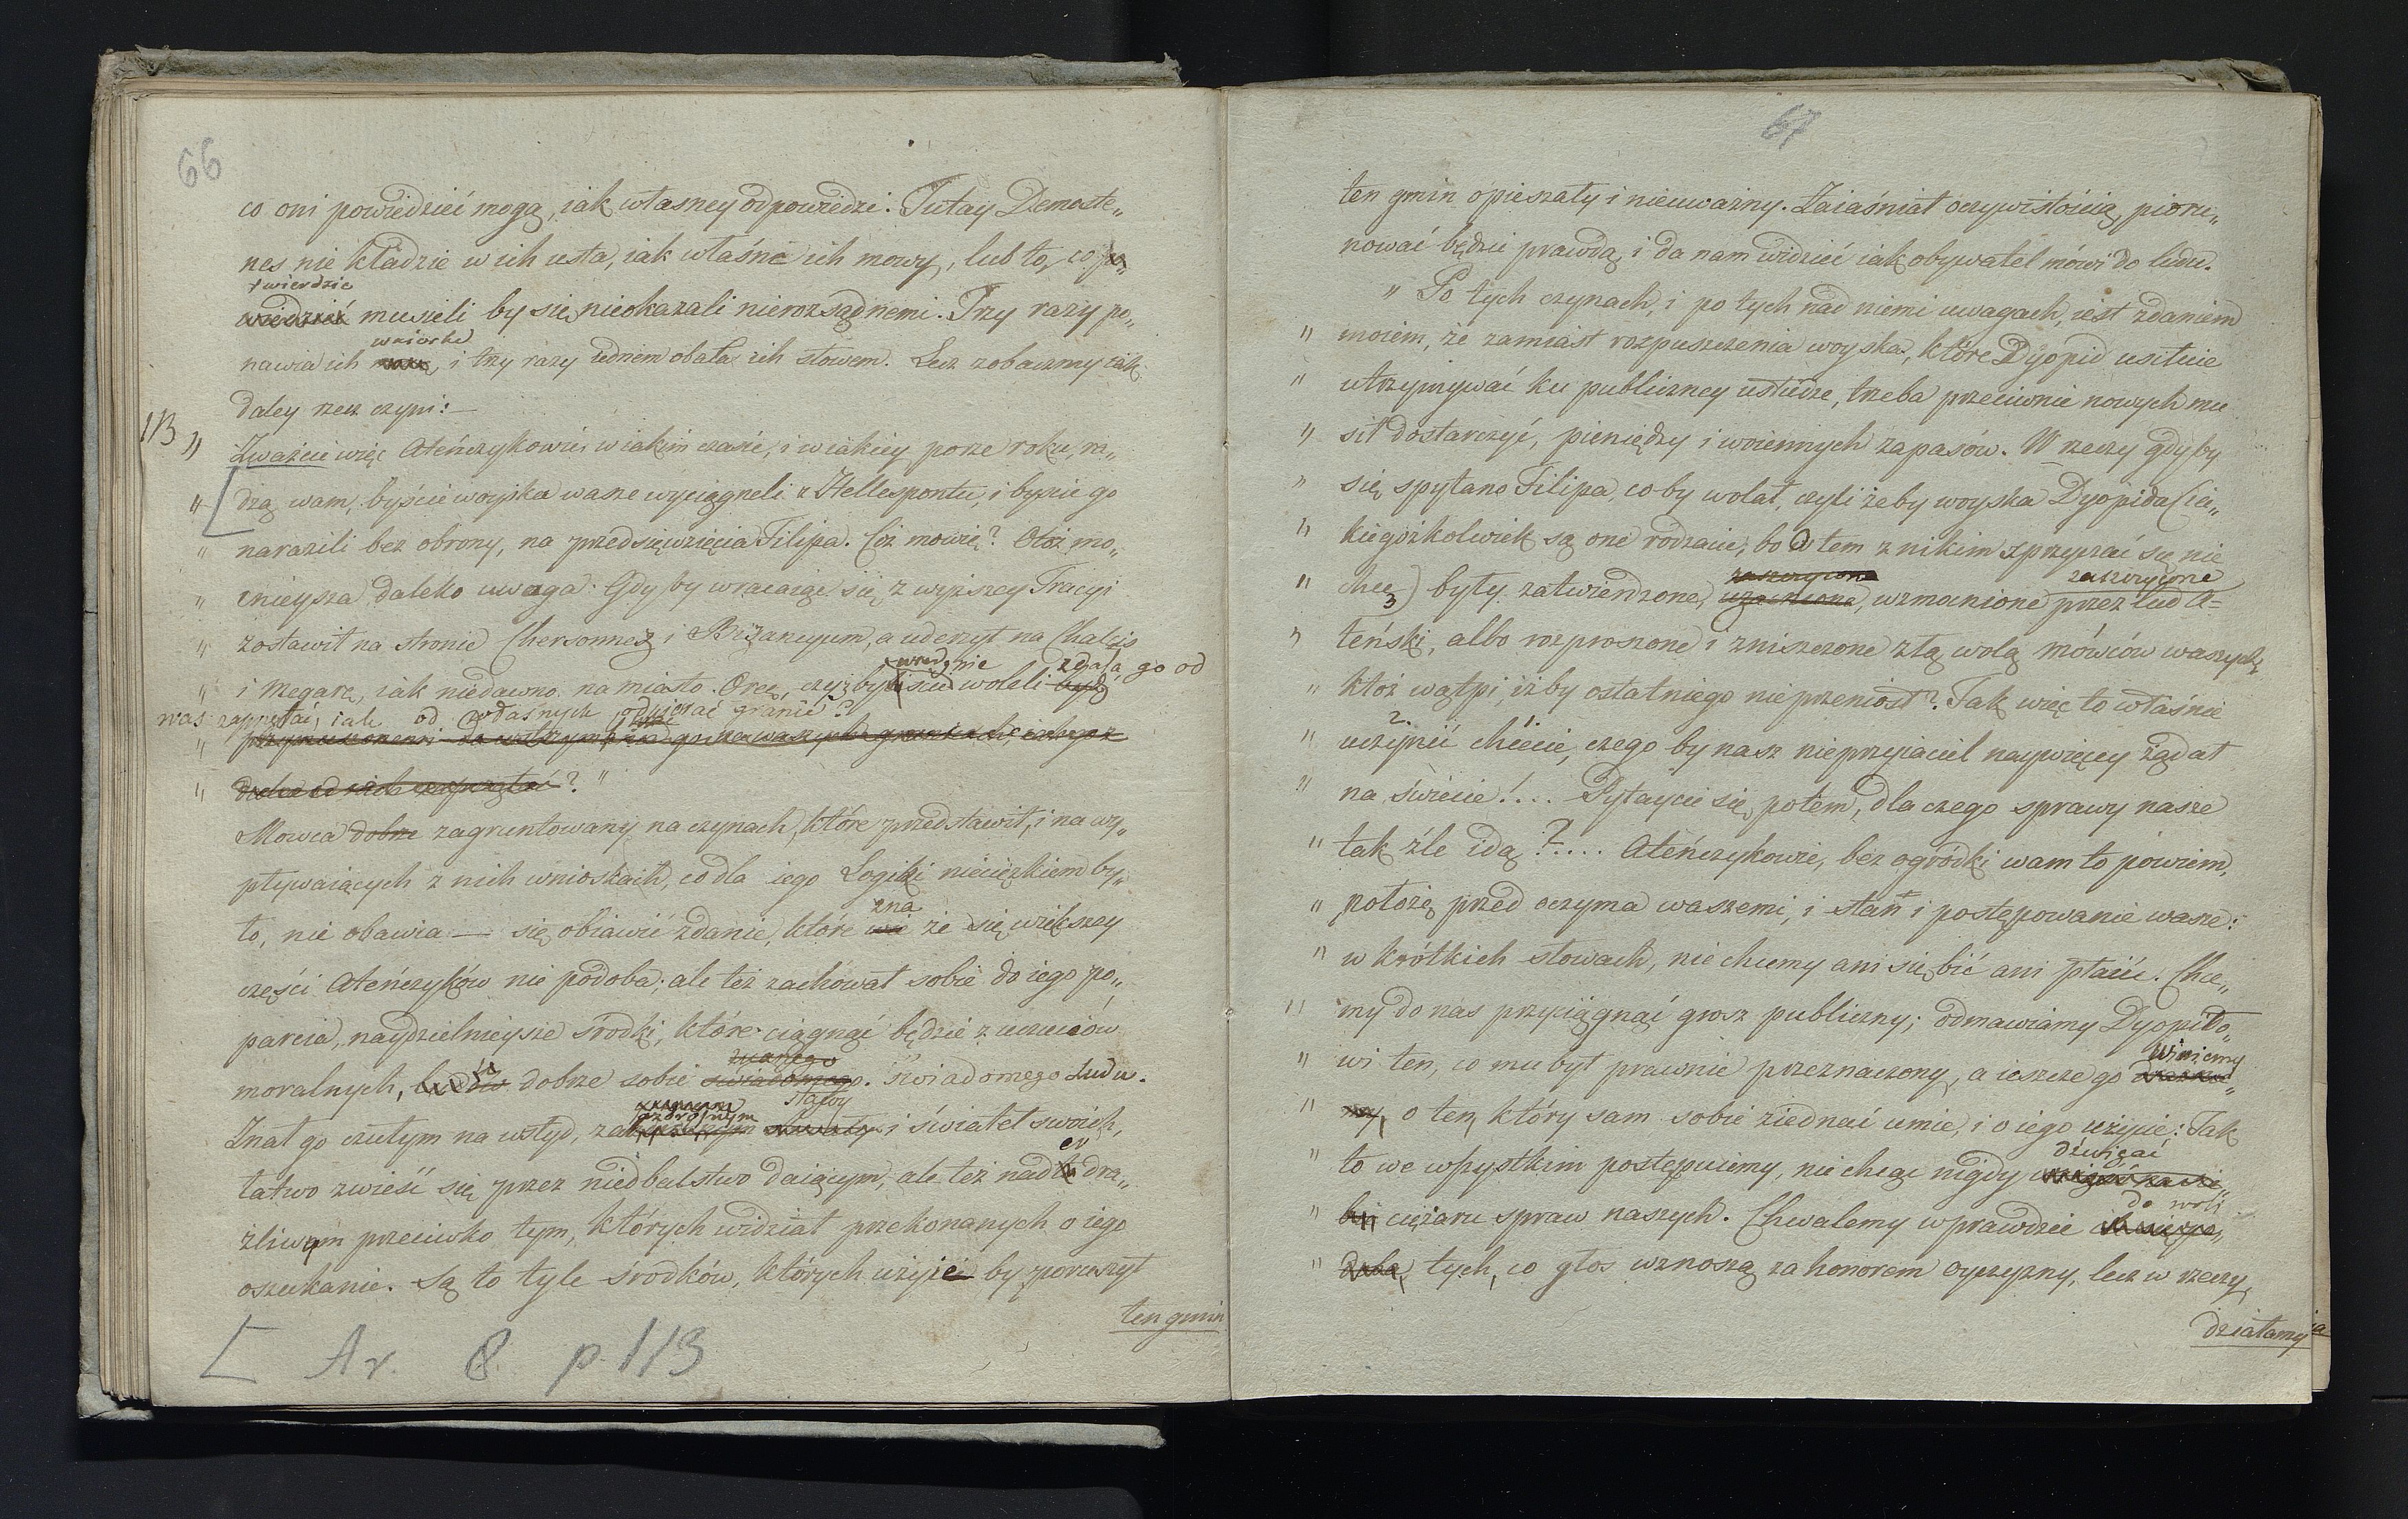 66
co oni powiedzieć mogą, iak własney odpowiedzi. Tutay Demoste„
nes nie kładzie w ich usta, iak właśnie ich mowy, lub to, co po„
twierdzie
wiedzieć musieli by się nieokazali nierozsądnemi. Trzy razy po„
wnioski
nawia ich i trzy razy iednem obala ich słowem. Lecz zobaczmy iak
daley rzecz czyni:—
113 „ Zważcie więc Ateńczykowie, w iakim czasie, i w iakiey porze roku, ra„
„ dzą wam, byście woyska wasze wyciągneli z Hellespontu, i byście go
„ narazili bez obrony, na przedsięwzięcia Filipa. Coż mowię? Otoż mo„
„ cnieysza daleko uwaga: Gdyby wracaiąc się z wyższey Tracyi
„ zostawił na stronie Chersonnez i Bizancyum, a uderzył na Chalcis
wrednie zdala go od
„ i Megarę, iak niedawno na miasto Oreę, czyżbyście woleli być
was zaprzątać, iak od własnych odpierać granic?
„ przymuszonemi do wstrzymania go na waszych granicach, iak zz
„ deka od nich zaprzątać? "
Mowca dobrze zagruntowany na czynach, które przedstawił, i na wy„
pływaiących z nich wnioskach, co dla iego Logiki nieciężkiem by„
zna
to, nie obawia — się obiawić zdanie, które wie że się większey
części Ateńczyków nie podoba; ale też zachował sobie do iego po„
parcia, naydzielnieysze środki, które ciągnąć będzie z uczuciów
znanego
moralnych, ludu dobrze sobie świadomego. świadomego Ludu.
sławy
Znał go czułym na wstyd, i świateł swoich,
er
łatwo zwieść się przez niedbalstwo daiącym, ale też nad dra„
żliwym przeciwko tym, których widział przekonanych o iego
oszukanie. Są to tyle środków, których użyie by poruszył
ten gmin
[ Ar. 8 p. 113
67
ten gmin opieszały i nieuważny. Zaiaśniał oczywistością, pioru„
nować będzie prawdą, i da nam widzieć iak obywatel mówi do ludu.
„ Po tych czynach, i po tych nad niemi uwagach, iest zdaniem
„ moiem, że zamiast rozpuszczenia woyska, które Dyopid usiłuie
„ utrzymywać ku publiczney usłudze, trzeba przeciwnie nowych mu
„ sił dostarczyć, pieniędzy i woiennych zapasów. W rzeczy gdyby
„ się spytano Filipa, co by wolał, czyli żeby woyska Dyopida (ia„
„ kiegożkolwiek są one rodzaiu, bo o tem z nikim sprzeczać się nie
zaszczycone zaszczycone
„ chcę) były zatwierdzone, uzacnione, wzmocnione przez lud A=
3
„ teński, albo rozproszone i zniszczone złą wolą mówców waszych
„ któż wątpi, iżby ostatniego nieprzeniósł? Tak więc to właśnie
2. 1.
„ uczynić chcecie, czego by nasz nieprzyiaciel naywięcey żądał
„ na świecie!.... Pytaycie się potem, dla czego sprawy nasze
„ tak źle idą ?.... Ateńczykowie, bez ogródki wam to powiem,
„ położę przed oczyma waszemi, i stan i postępowanie wasze:
„ w krótkich słowach, nie chcemy ani się bić ani płacić. Chce„
„ my do nas przyciągnąć grosz publiczny; odmawiamy Dyopido„
winiemy
„ wi ten, co mu był prawnie przeznaczony, a ieszcze go
„ my o ten, który sam sobie ziednać umie, i o iego użycie: Tak
dźwigać
„ to we wszystkim postępuiemy, nie chcąc nigdy wziąść na sie„
do woli
„ bie ciężaru spraw naszych. Chwalemy wprawdzie
„ tych, co głos wznoszą za honorem oyczyzny, lecz w rzeczy
działamy